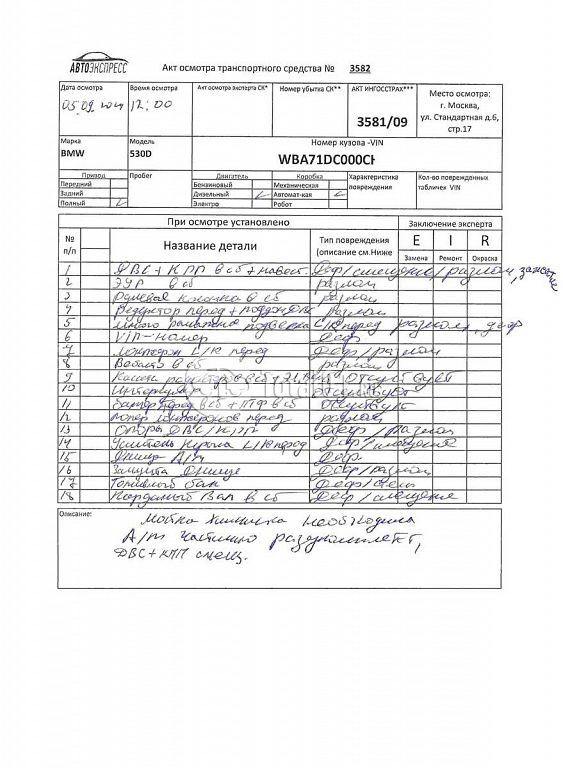 АВТОЭКСПРЕСС
Акт осмотра транспортного средства № 3582
Дата осмотра
Время осмотра
Акт осмотра эксперта СК*
Номер убытка СК**
АКТ ИНГОССТРАХ***
Место осмотра:
05.09. 12:00
3581/09
г. Москва,
ул. Стандартная д.6,
стр.17
Марка
Модель
Номер кузова -VIN
BMW
530D
WBA71DC000CH
Привод
Пробег
Двигатель
Коробка
Характеристика повреждения
Кол-во поврежденных табличек VIN
Передний
Бензиновый
Механическая
Задний
Дизельный
Автомат-кая
Полный
Электро
Робот
При осмотре установлено
Заключение эксперта
№ п/п
Название детали
Тип повреждения
(описание см.Ниже
E I R
Замена Ремонт Окраска
1 ДВС + КПП в сб + навесн. Деф/смещение/разлом,
2 ЭУР в сб разлом
3 Рулевая колонка в сб разлом
4 Редуктор перед + разлом
5 подвеска L/R перед разлом, деф
6 VIN-номер Деф
7 Лонжерон L/R перед Деф/разлом
8 Вебасто в сб разлом
9 Кассета радиаторов в сб + отсутствует
10 Интеркулер отсутствует
11 Бампер перед в сб + ПТФ в сб отсутствует
12 перед разлом
13 Опоры ДВС/КПП Деф/разлом
14 Усилитель крыла L/R перед Деф/смещение
15 Днище А/м Деф.
16 Защита днища Деф/разлом
17 Топливный бак
18 Карданный вал в сб Деф/смещение
Описание:
Мойка химчистка необходима
А/м частично разукомплект,
ДВС + КПП смещ.